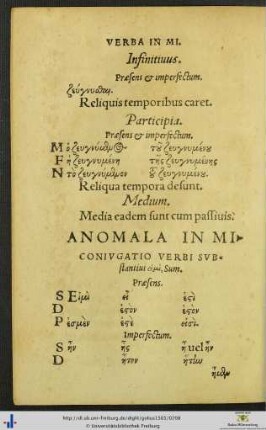 VERBA IN MI.
Infinitiuus.
Præsens & imperfectum.
ζεύγνυσθαι.
Reliquis temporibus caret.
Participia.
Præsens & imperfectum.
M ὁ ζευγνύμενος τοῦ ζευγνυμένου
F ἡ ζευγνυμένη τῆς ζευγνυμένης
N τὸ ζευγνύμενον τοῦ ζευγνυμένου.
Reliqua tempora desunt.
Medium.
Media eadem sunt cum passiuis.
ANOMALA IN MI
CONIVGATIO VERBI SVB-
stantiui εἰμὶ, Sum.
Præsens.
S Εἰμὶ εἶ ἐστὶ
D ἐστὸν ἐστὸν
P ἐσμὲν ἐστὲ εἰσὶ.
Imperfectum.
S ἦν ἦς ἦ uel ἦν
D ἦτον ἤτην
ἦμεν
http://dl.ub.uni-freiburg.de/diglit/golius1565/0208
© Universitätsbibliothek Freiburg